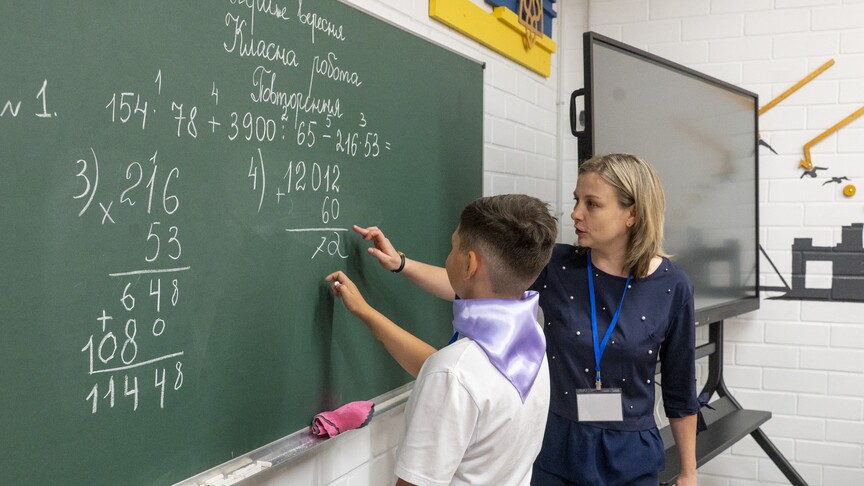 вересня
Класна робота
Повторення
1 4 2 5 3
№ 1. 154 · 78 + 3900 : 65 - 216 · 53 =
3) × 216
1
53
648
+
1080
11448
4) + 12012
60
72